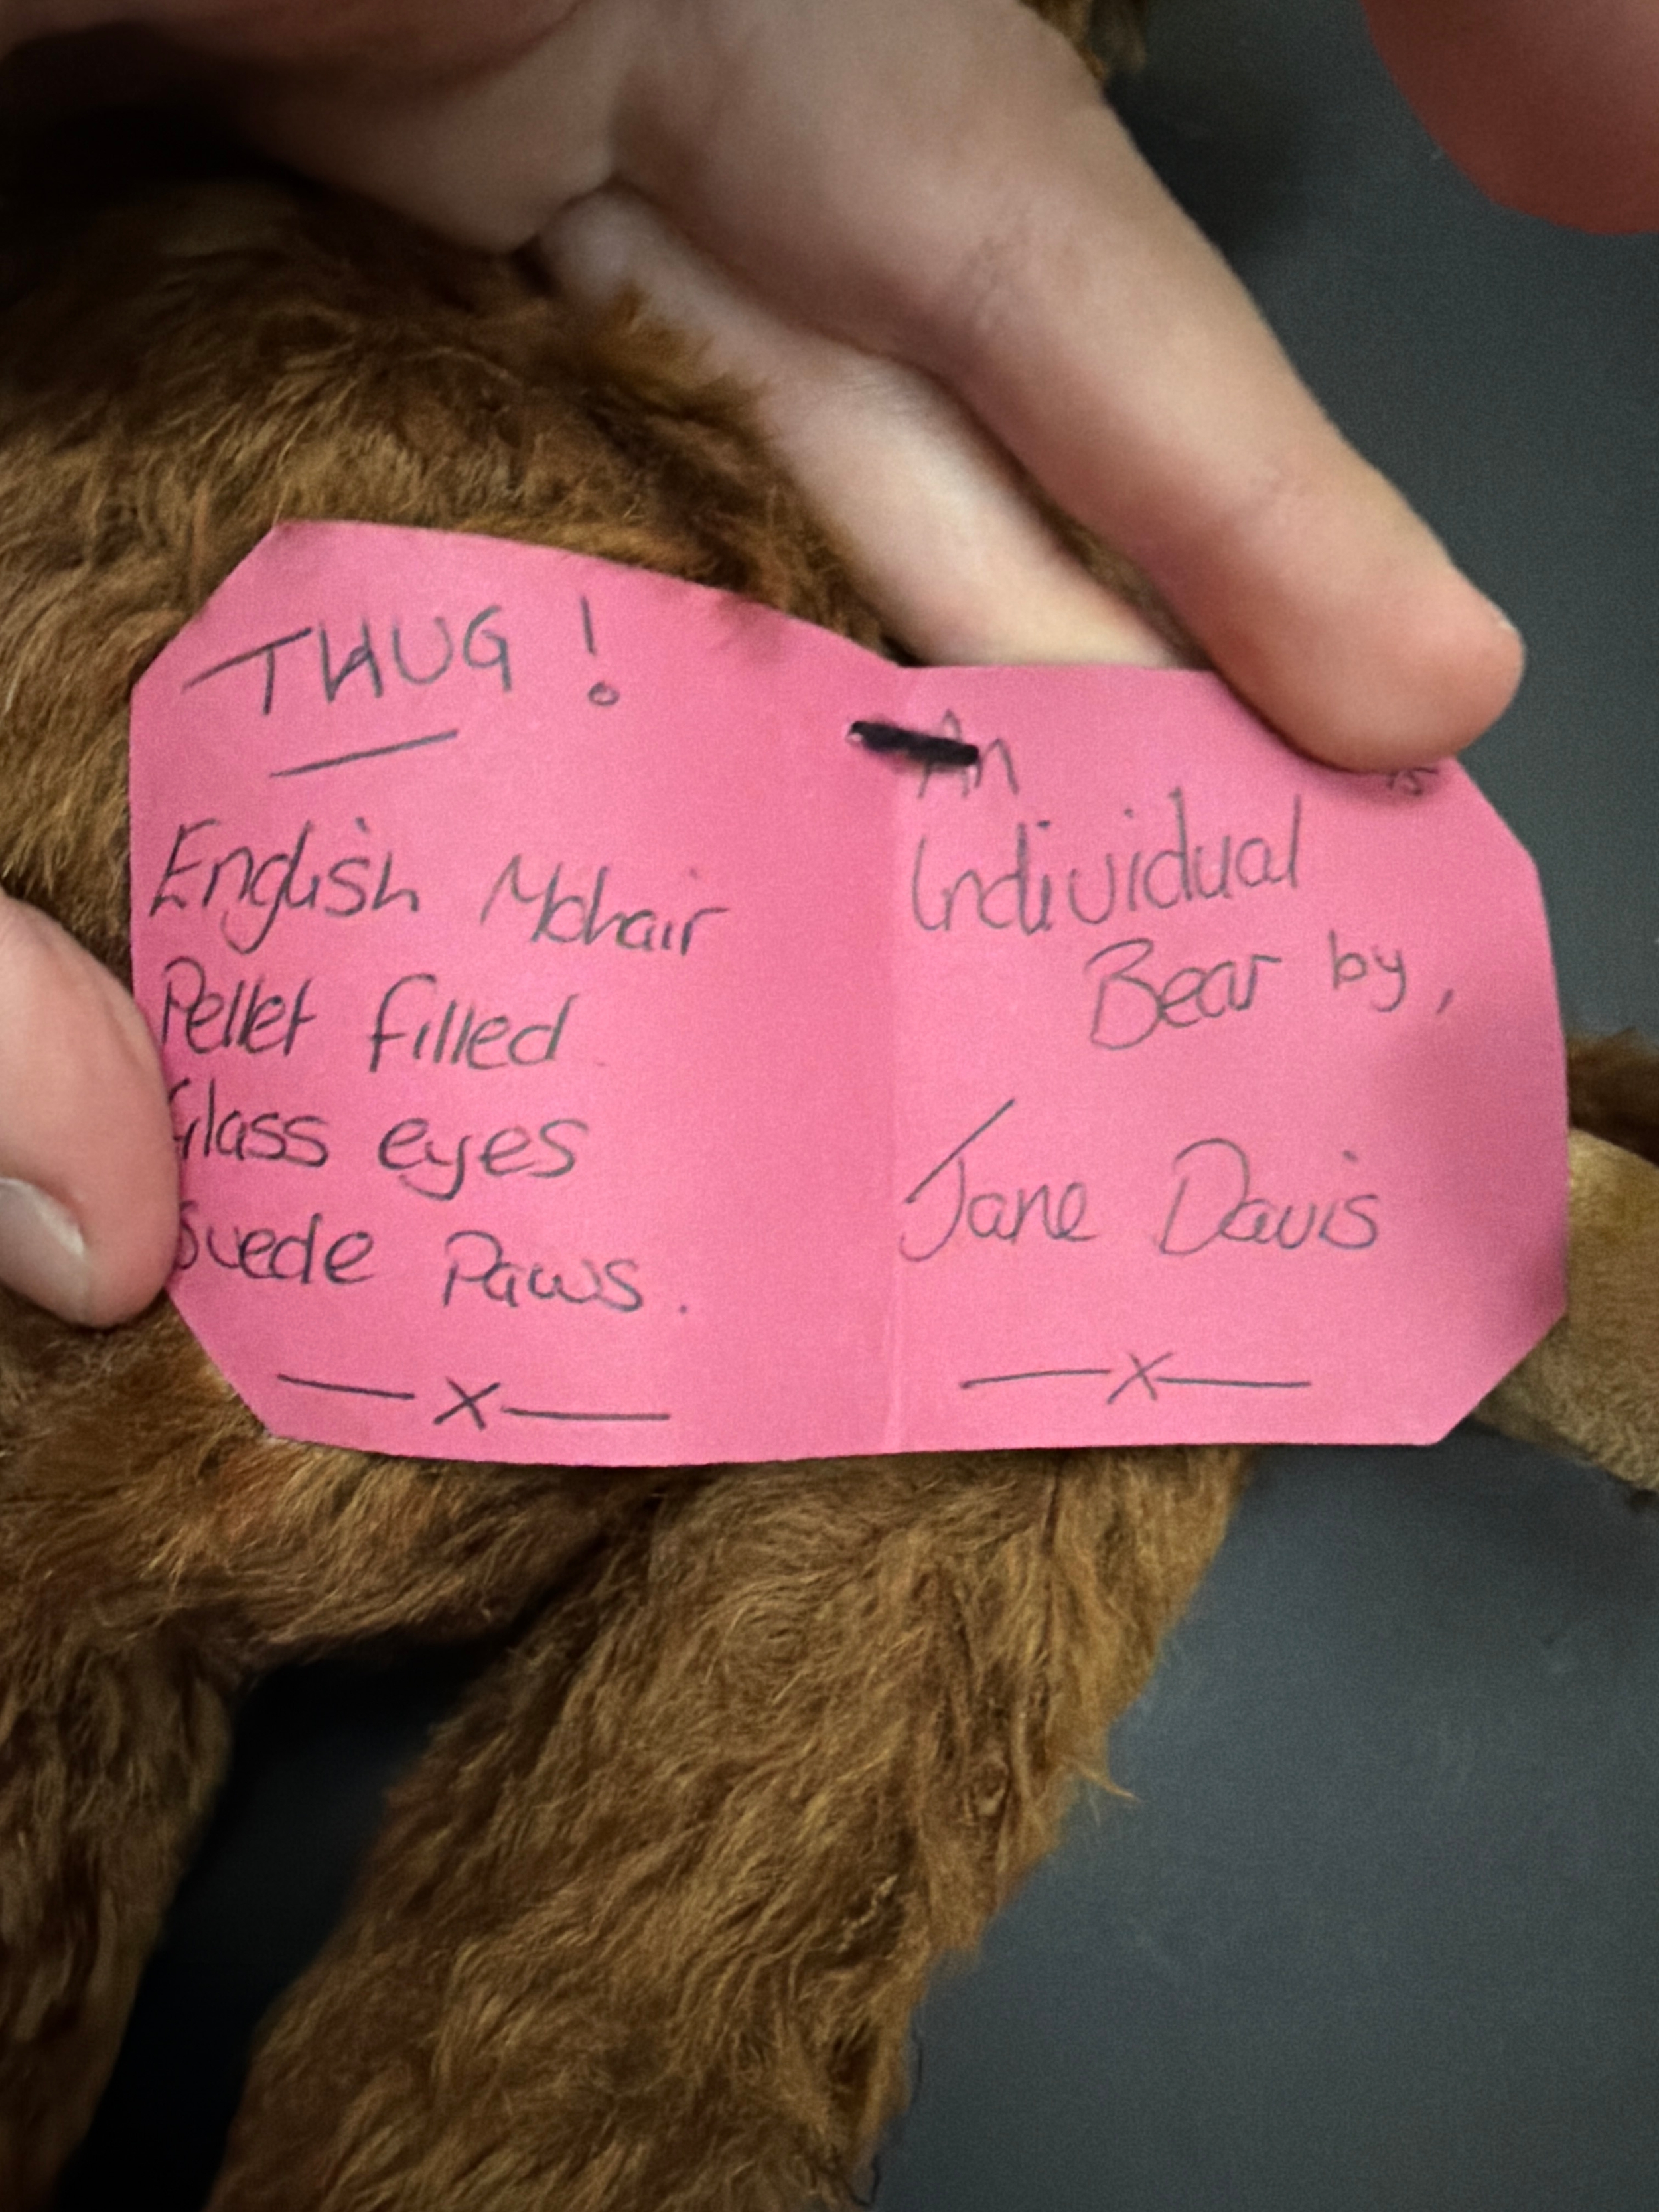 THUG!
English Mohair
Pellet filled
Glass eyes
Suede Paws.
x
An
Individual
Bear by,
Jane Davis
x